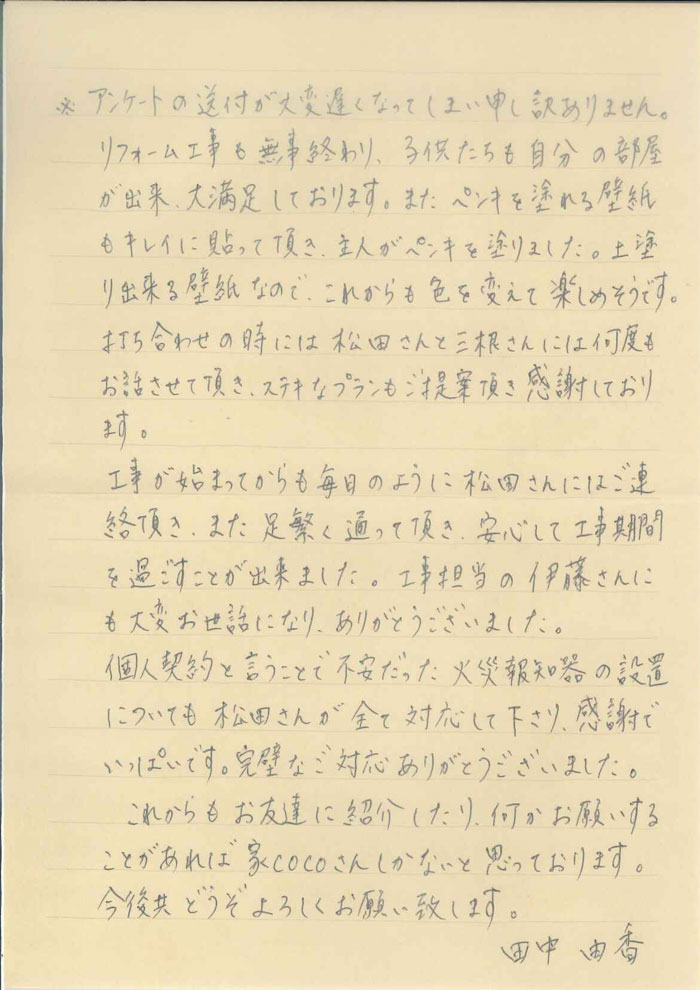 ※ アンケートの送付が大変遅くなってしまい申し訳ありません。
リフォーム工事も無事終わり、子供たちも自分の部屋
が出来、大満足しております。また ペンキを塗れる壁紙
もキレイに貼って頂き、主人がペンキを塗りました。上塗
り出来る壁紙なので、これからも色を変えて楽しめそうです。
打ち合わせの時には松田さんと三根さんには何度も
お話させて頂き、ステキなプランもご提案頂き感謝しており
ます。
工事が始まってからも毎日のように松田さんにはご連
絡頂き、また足繁く通って頂き、安心して工事期間
を過ごすことが出来ました。工事担当の伊藤さんに
も大変お世話になり、ありがとうございました。
個人契約と言うことで不安だった火災報知器の設置
についても松田さんが全て対応して下さり、感謝で
いっぱいです。完璧なご対応ありがとうございました。
これからもお友達に紹介したり、何かお願いする
ことがあれば家COCOさんしかないと思っております。
今後共どうぞよろしくお願い致します。
田中 由香